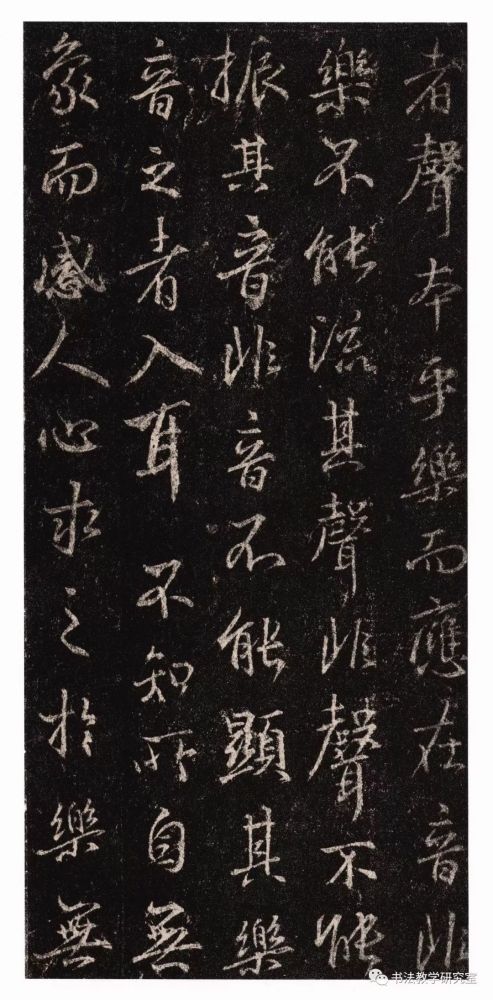 者聲本乎樂而應在音非
樂不能流其聲非聲不能
振其音非音不能顯其樂
音之者入耳不知所自無
象而感人心求之於樂無
书法教学研究室